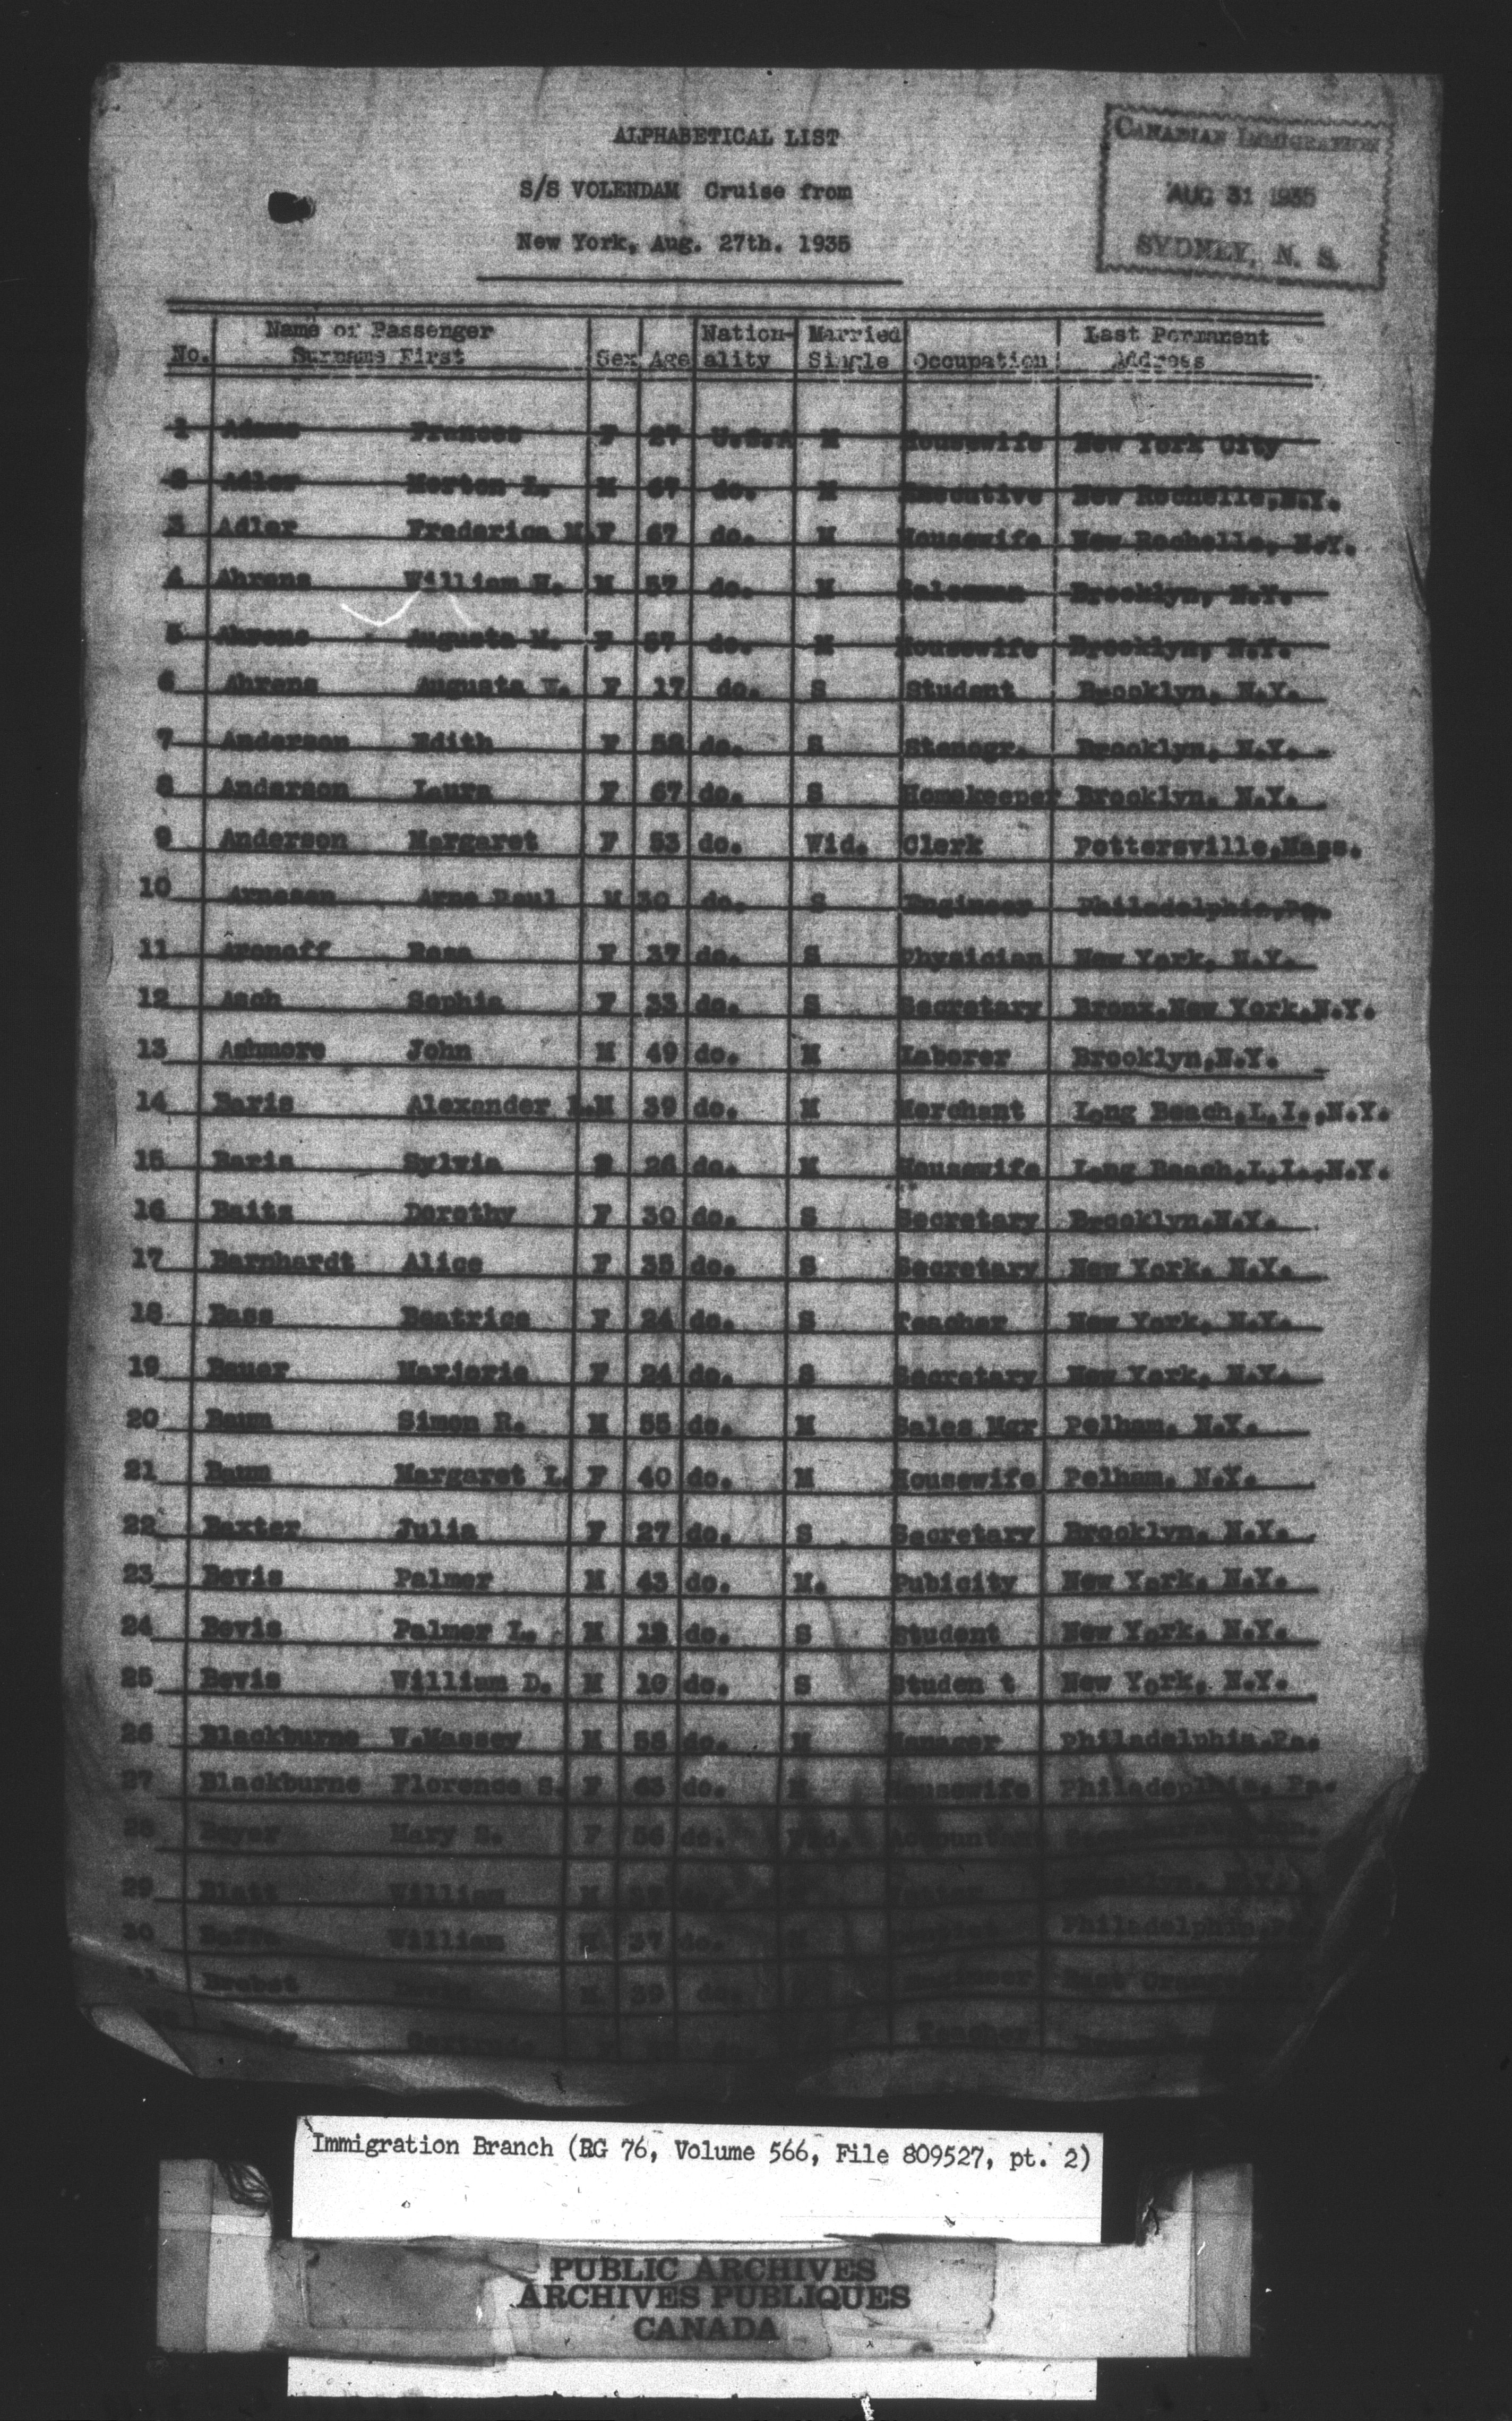 ALPHABETICAL LIST
S/S VOLENDAM Cruise from
New York, Aug. 27th. 1935
CANADIAN IMMIGRATION
AUG 31 1935
SYDNEY, N. S.
No. Name of Passenger Surname First Sex Age Nation-ality Married Single Occupation Last Permanent Address
1 Adams Frances F 27 U.S.A M Housewife New York City
2 Adler Morton L. M 67 do. M Executive New Rochelle,N.Y.
3 Adler Frederica M. F 67 do. M Housewife New Rochelle, N.Y.
4 Ahrens William H. M 57 do. M Salesman Brooklyn, N.Y.
5 Ahrens Augusta M. F 57 do. M Housewife Brooklyn, N.Y.
6 Ahrens Augusta F 17 do. S Student Brooklyn, N.Y.
7 Anderson Edith F do. S Stenogr. Brooklyn, N.Y.
8 Anderson Laura F 67 do. S Homekeeper Brooklyn, N.Y.
9 Anderson Margaret F 53 do. Wid. Clerk Pottersville,Mass.
10 Arnesen Arne Paul M 30 do. S Engineer Philadelphia,Pa.
11 Aronoff Rosa F 37 do. S Physician New York, N.Y.
12 Asch Sophie F 33 do. S Secretary Bronx,New York,N.Y.
13 Ashmore John M 49 do. M Laborer Brooklyn,N.Y.
14 Baris Alexander L. M 39 do. M Merchant Long Beach,L.I.,N.Y.
15 Baris Sylvia 26 do. M Housewife Long Beach,L.I.,N.Y.
16 Baitz Dorothy F 30 do. S Secretary Brooklyn,N.Y.
17 Barnhardt Alice F 35 do. S Secretary New York, N.Y.
18 Bass Beatrice F 24 do. S Teacher New York, N.Y.
19 Bauer Marjorie F 24 do. S Secretary New York, N.Y.
20 Baum Simon R. M 55 do. M Sales Mgr Pelham, N.Y.
21 Baum Margaret L. F 40 do. M Housewife Pelham, N.Y.
22 Baxter Julia F 27 do. S Secretary Brooklyn, N.Y.
23 Bevis Palmer M 43 do. M. Pubicity New York, N.Y.
24 Bevis Palmer L. M do. S Student New York, N.Y.
25 Bevis William D. M 10 do. S Studen t New York, N.Y.
26 Blackburne W.Massey M 55 do. M Manager Philadelphia,Pa.
27 Blackburne Florence S. F do. M Housewife Philadeplhia, Pa.
28 Beyer Mary S. F 56 do. Wid. Accountant
29 Blatt William M Brooklyn, N.Y.
30 William M 37 do. Philadelphia
31 Brobst M 39 do. Engineer East Orange
Gertrude Teacher
Immigration Branch (RG 76, Volume 566, File 809527, pt. 2)
PUBLIC ARCHIVES
ARCHIVES PUBLIQUES
CANADA